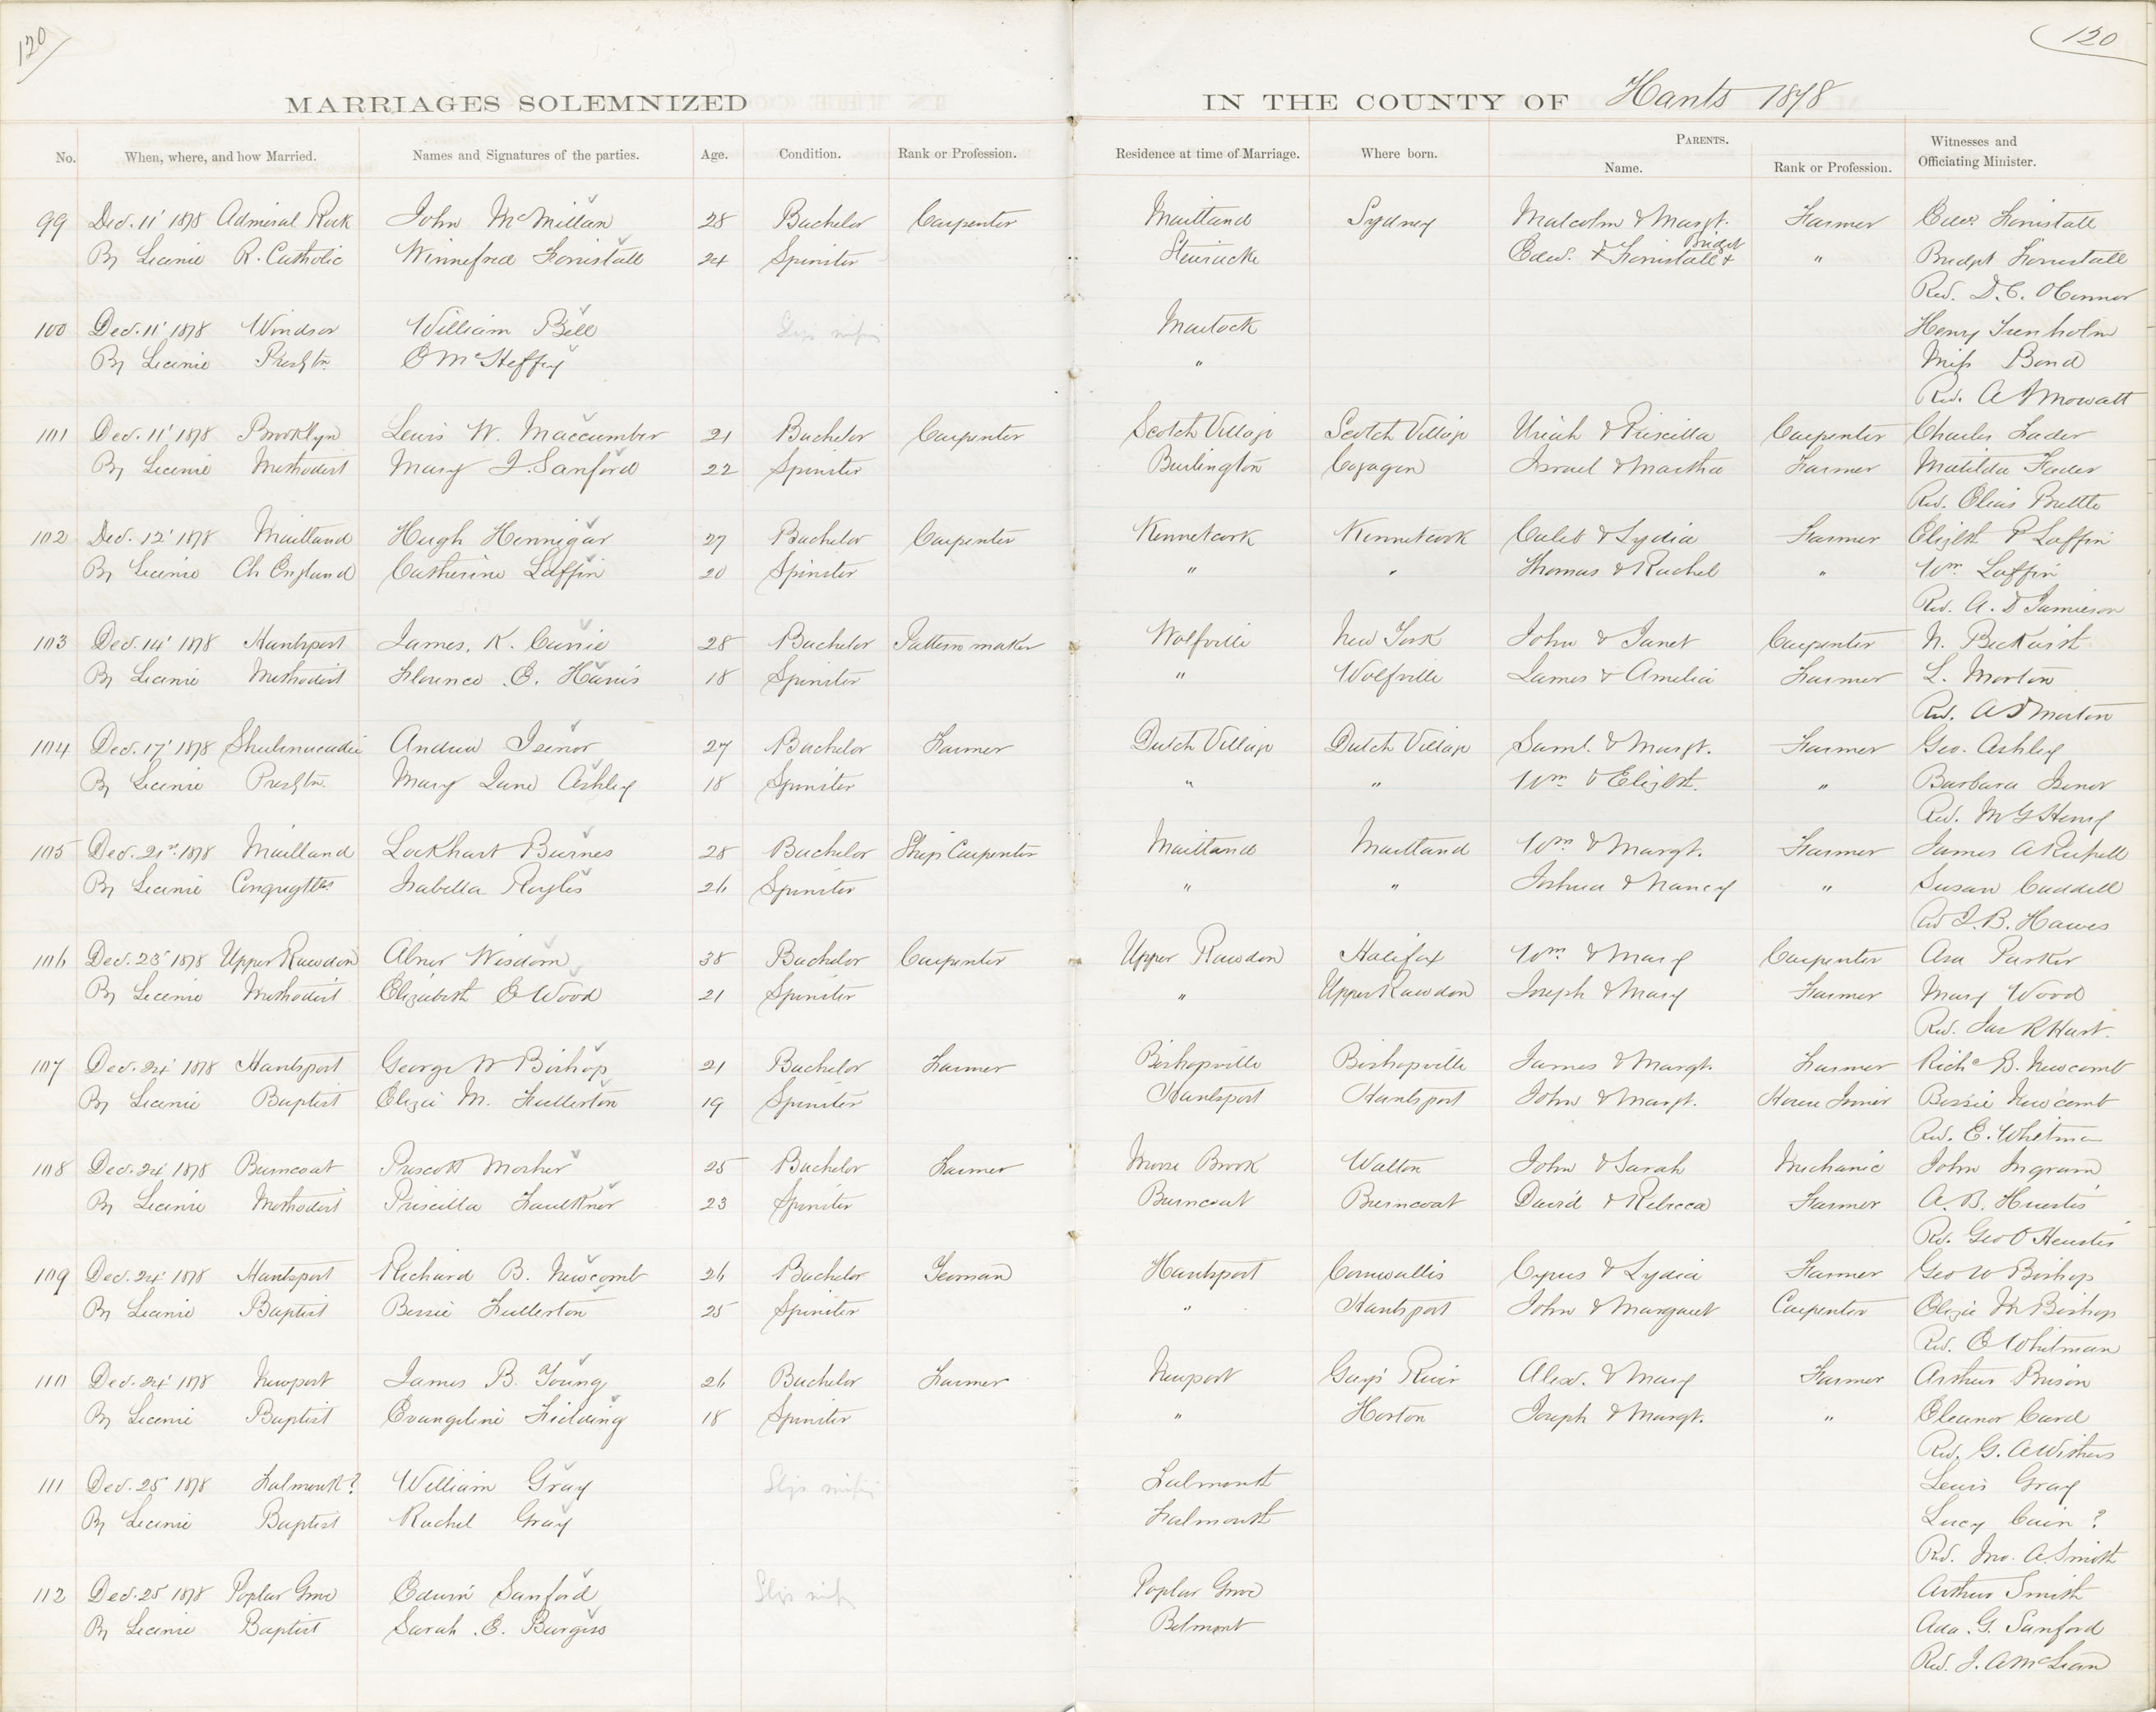 120
120
MARRIAGES SOLEMNIZED IN THE COUNTY OF Hants 1878
No. When, where, and how Married. Names and Signatures of the parties. Age. Condition. Rank or Profession. Residence at time of Marriage. Where born. PARENTS. Name. Rank or Profession. Witnesses and Officiating Minister.
99 Dec. 11' 1878 Admiral Rock John McMillan 28 Bachelor Carpenter Maitland Sydney Malcolm & Margt. Farmer Edw. Forristall
By Licence R. Catholic Winnefred Forristall 24 Spinster Edw. & Forristall & Bridget " Bridgt Forristall
Rev. D. C. O'Connor
100 Dec. 11' 1878 Windsor William Bell Slip missing Martock Henry Trenholm
By Licence Presbtn. O McHeffey " Miss Bond
Rev. A J Mowatt
101 Dec. 11' 1878 Brooklyn Lewis W. Maccumber 21 Bachelor Carpenter Scotch Village Scotch Village Uriah & Priscilla Carpenter Charles Fader
By Licence Methodist Mary J. Sanford 22 Spinster Burlington Israel & Martha Farmer Matilda Fader
Rev. Elias Brettle
102 Dec. 12' 1878 Maitland Hugh Hennigar 27 Bachelor Carpenter Kennetcook Kennetcook Caleb & Lydia Farmer Elizbth P Laffin
By Licence Ch England Catherine Laffin 20 Spinster " " Thomas & Rachel " Wm. Laffin
Rev. A. D Jamieson
103 Dec. 14' 1878 Hantsport James. K. Currie 28 Bachelor Pattern maker Wolfville New York John & Janet Carpenter N. Beckwith
By Licence Methodist Florence E. Harris 18 Spinster " Wolfville James & Amelia Farmer L. Morton
Rev. A D Morton
104 Dec. 17' 1878 Shubenacadie Andrew Isenor 27 Bachelor Farmer Dutch Village Dutch Village Saml. & Margt. Farmer Geo. Ashley
By Licence Presbtn. Mary Jane Ashley 18 Spinster " " Wm. & Elizbth. " Barbara Isenor
Rev. M G Henry
105 Dec. 21st. 1878 Maitland Lockhart Burnes 28 Bachelor Ship Carpenter Maitland Maitland Wm. & Margt. Farmer James A Russell
By Licence Isabella Royles 26 Spinster " " Joshua & Nancy " Susan Caddell
Rev J. B. Hawes
106 Dec. 23' 1878 Upper Rawdon Abner Wisdom 38 Bachelor Carpenter Upper Rawdon Halifax Wm. & Mary Carpenter Asa Parker
By Licence Methodist Elizabeth E Wood 21 Spinster " Upper Rawdon Joseph & Mary Farmer Mary Wood
Rev. Jas R Hart.
107 Dec. 24' 1878 Hantsport George W Bishop 21 Bachelor Farmer Bishopville Bishopville James & Margt. Farmer Richd B. Newcomb
By Licence Baptist Elizie M. Fullerton 19 Spinster Hantsport Hantsport John & Margt. House Joiner Bessie Newcomb
Rev. E. Whitman
108 Dec. 24' 1878 Burncoat Prescott Mosher 25 Bachelor Farmer Moose Brook Walton John & Sarah Mechanic John Ingram
By Licence Methodist Priscilla Faulkner 23 Spinster Burncoat Burncoat David & Rebecca Farmer A. B. Huestis
Rev. Geo O Heustis
109 Dec. 24' 1878 Hantsport Richard B. Newcomb 26 Bachelor Yeoman Hantsport Cornwallis Cyrus & Lydia Farmer Geo W Bishop
By Licence Baptist Bessie Fullerton 25 Spinster " Hantsport John & Margaret Carpenter Elizie M Bishop
Rev. E Whitman
110 Dec. 24' 1878 Newport James B. Young 26 Bachelor Farmer Newport Gay's River Alex. & Mary Farmer Arthur Brison
By Licence Baptist Evangeline Fielding 18 Spinster " Horton Joseph & Margt. " Eleanor Card
Rev. G. A Withers
111 Dec. 25' 1878 Falmouth? William Gray Slip missing Falmouth Lewis Gray
By Licence Baptist Rachel Gray Falmouth Lucy Cain ?
Rev. Jno. A. Smith
112 Dec. 25 1878 Poplar Grove Edwin Sanford Slip miss Poplar Grove Arthur Smith
By Licence Baptist Sarah. E. Burgess Belmont Ada. G. Sanford
Rev. J. A McLean